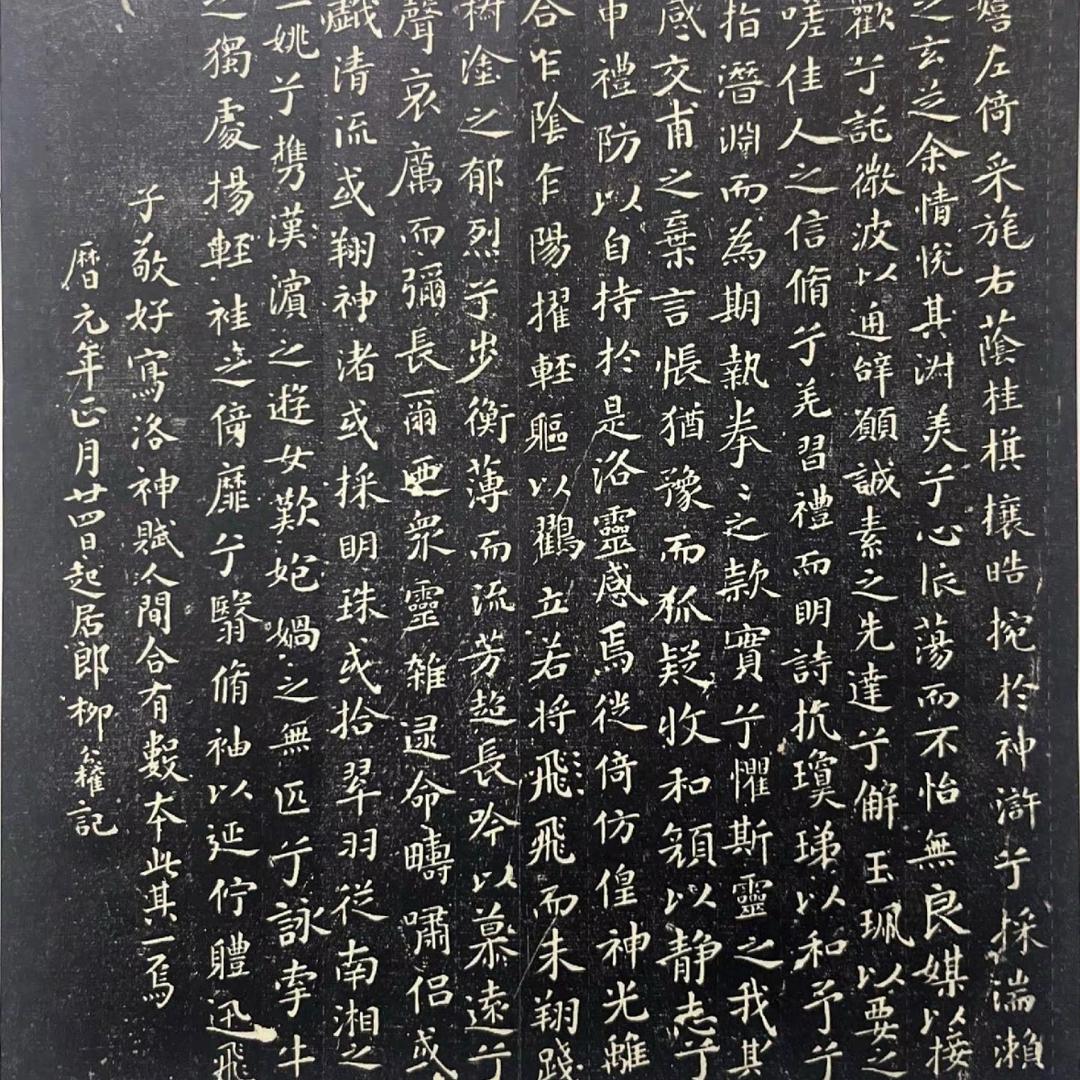 嬉左倚采旄右蔭桂棋攘皓捥於神滸兮採湍瀨
之玄芝余情悅其淋美兮心依蕩而不怡無良媒以接
歡兮託微波以通辝願誠素之先達兮解玉珮以要之
嗟佳人之信脩兮羌習禮而明詩抗瓊珶以和予兮
指潛淵而為期執拳〻之款實兮懼斯靈之我其
感交甫之棄言悵猶豫而狐疑收和顏以靜志兮
申禮防以自持於是洛靈感焉徙倚仿偟神光離
合乍陰乍陽擢輕軀以鶴立若將飛飛而未翔踐
塗之郁烈兮步衡薄而流芳超長吟以慕遠兮
聲哀厲而彌長爾迺眾靈雜逯命疇嘯侶或
戲清流或翔神渚或採明珠或拾翠羽從南湘之
二姚兮攜漢濱之遊女歎妑媧之無匹兮詠牽牛
之獨處揚輕袿之倚靡兮翳脩袖以延佇體迅飛
子敬好寫洛神賦人間合有數本此其一焉
曆元年正月廿四日起居郎柳公權記